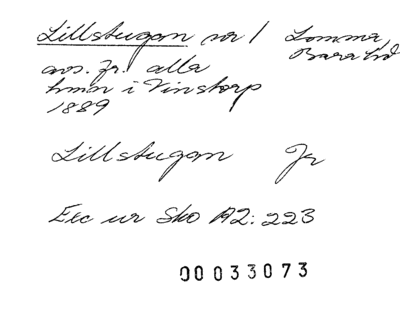 Lillstugan nr 1 Lomma,
Bara hd
avs. fr. alla
hmn i Vinstorp
1889
Lillstugan Jr
Exc ur Sko A2: 223
00033073